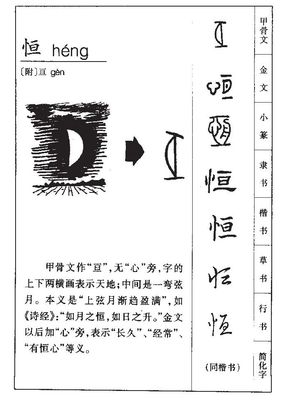 恒 héng
〔附〕亘 gèn
甲骨文作“亘”,无“心”旁,字的
上下两横画表示天地;中间是一弯弦
月。本义是“上弦月渐趋盈满”,如
《诗经》:“如月之恒,如日之升。”金文
以后加“心”旁,表示“长久”、“经常”、
“有恒心”等义。
亘
恒
恒
恒
恒
恒
恒
(同楷书)
甲骨文
金文
小篆
隶书
楷书
草书
行书
简化字